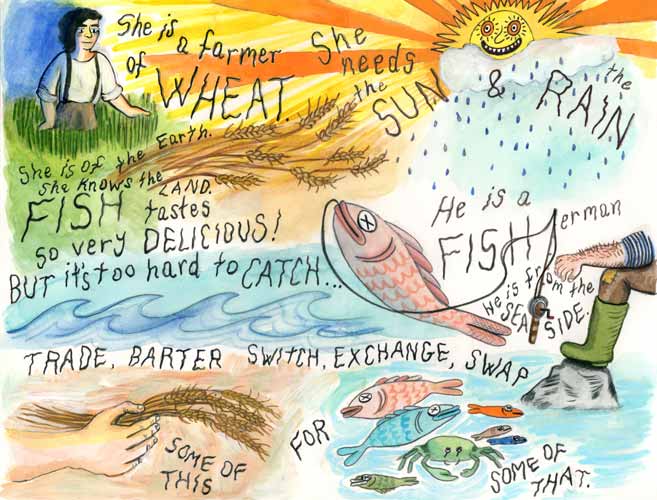 She is a farmer
of WHEAT.
She needs the SUN
& the RAIN
She is of the Earth.
She knows the LAND.
FISH tastes
so very DELICIOUS!
BUT it's too hard to CATCH...
He is a
FISHerman
He is from the
SEA SIDE.
TRADE, BARTER SWITCH, EXCHANGE, SWAP
SOME OF
THIS
FOR
SOME OF
THAT.